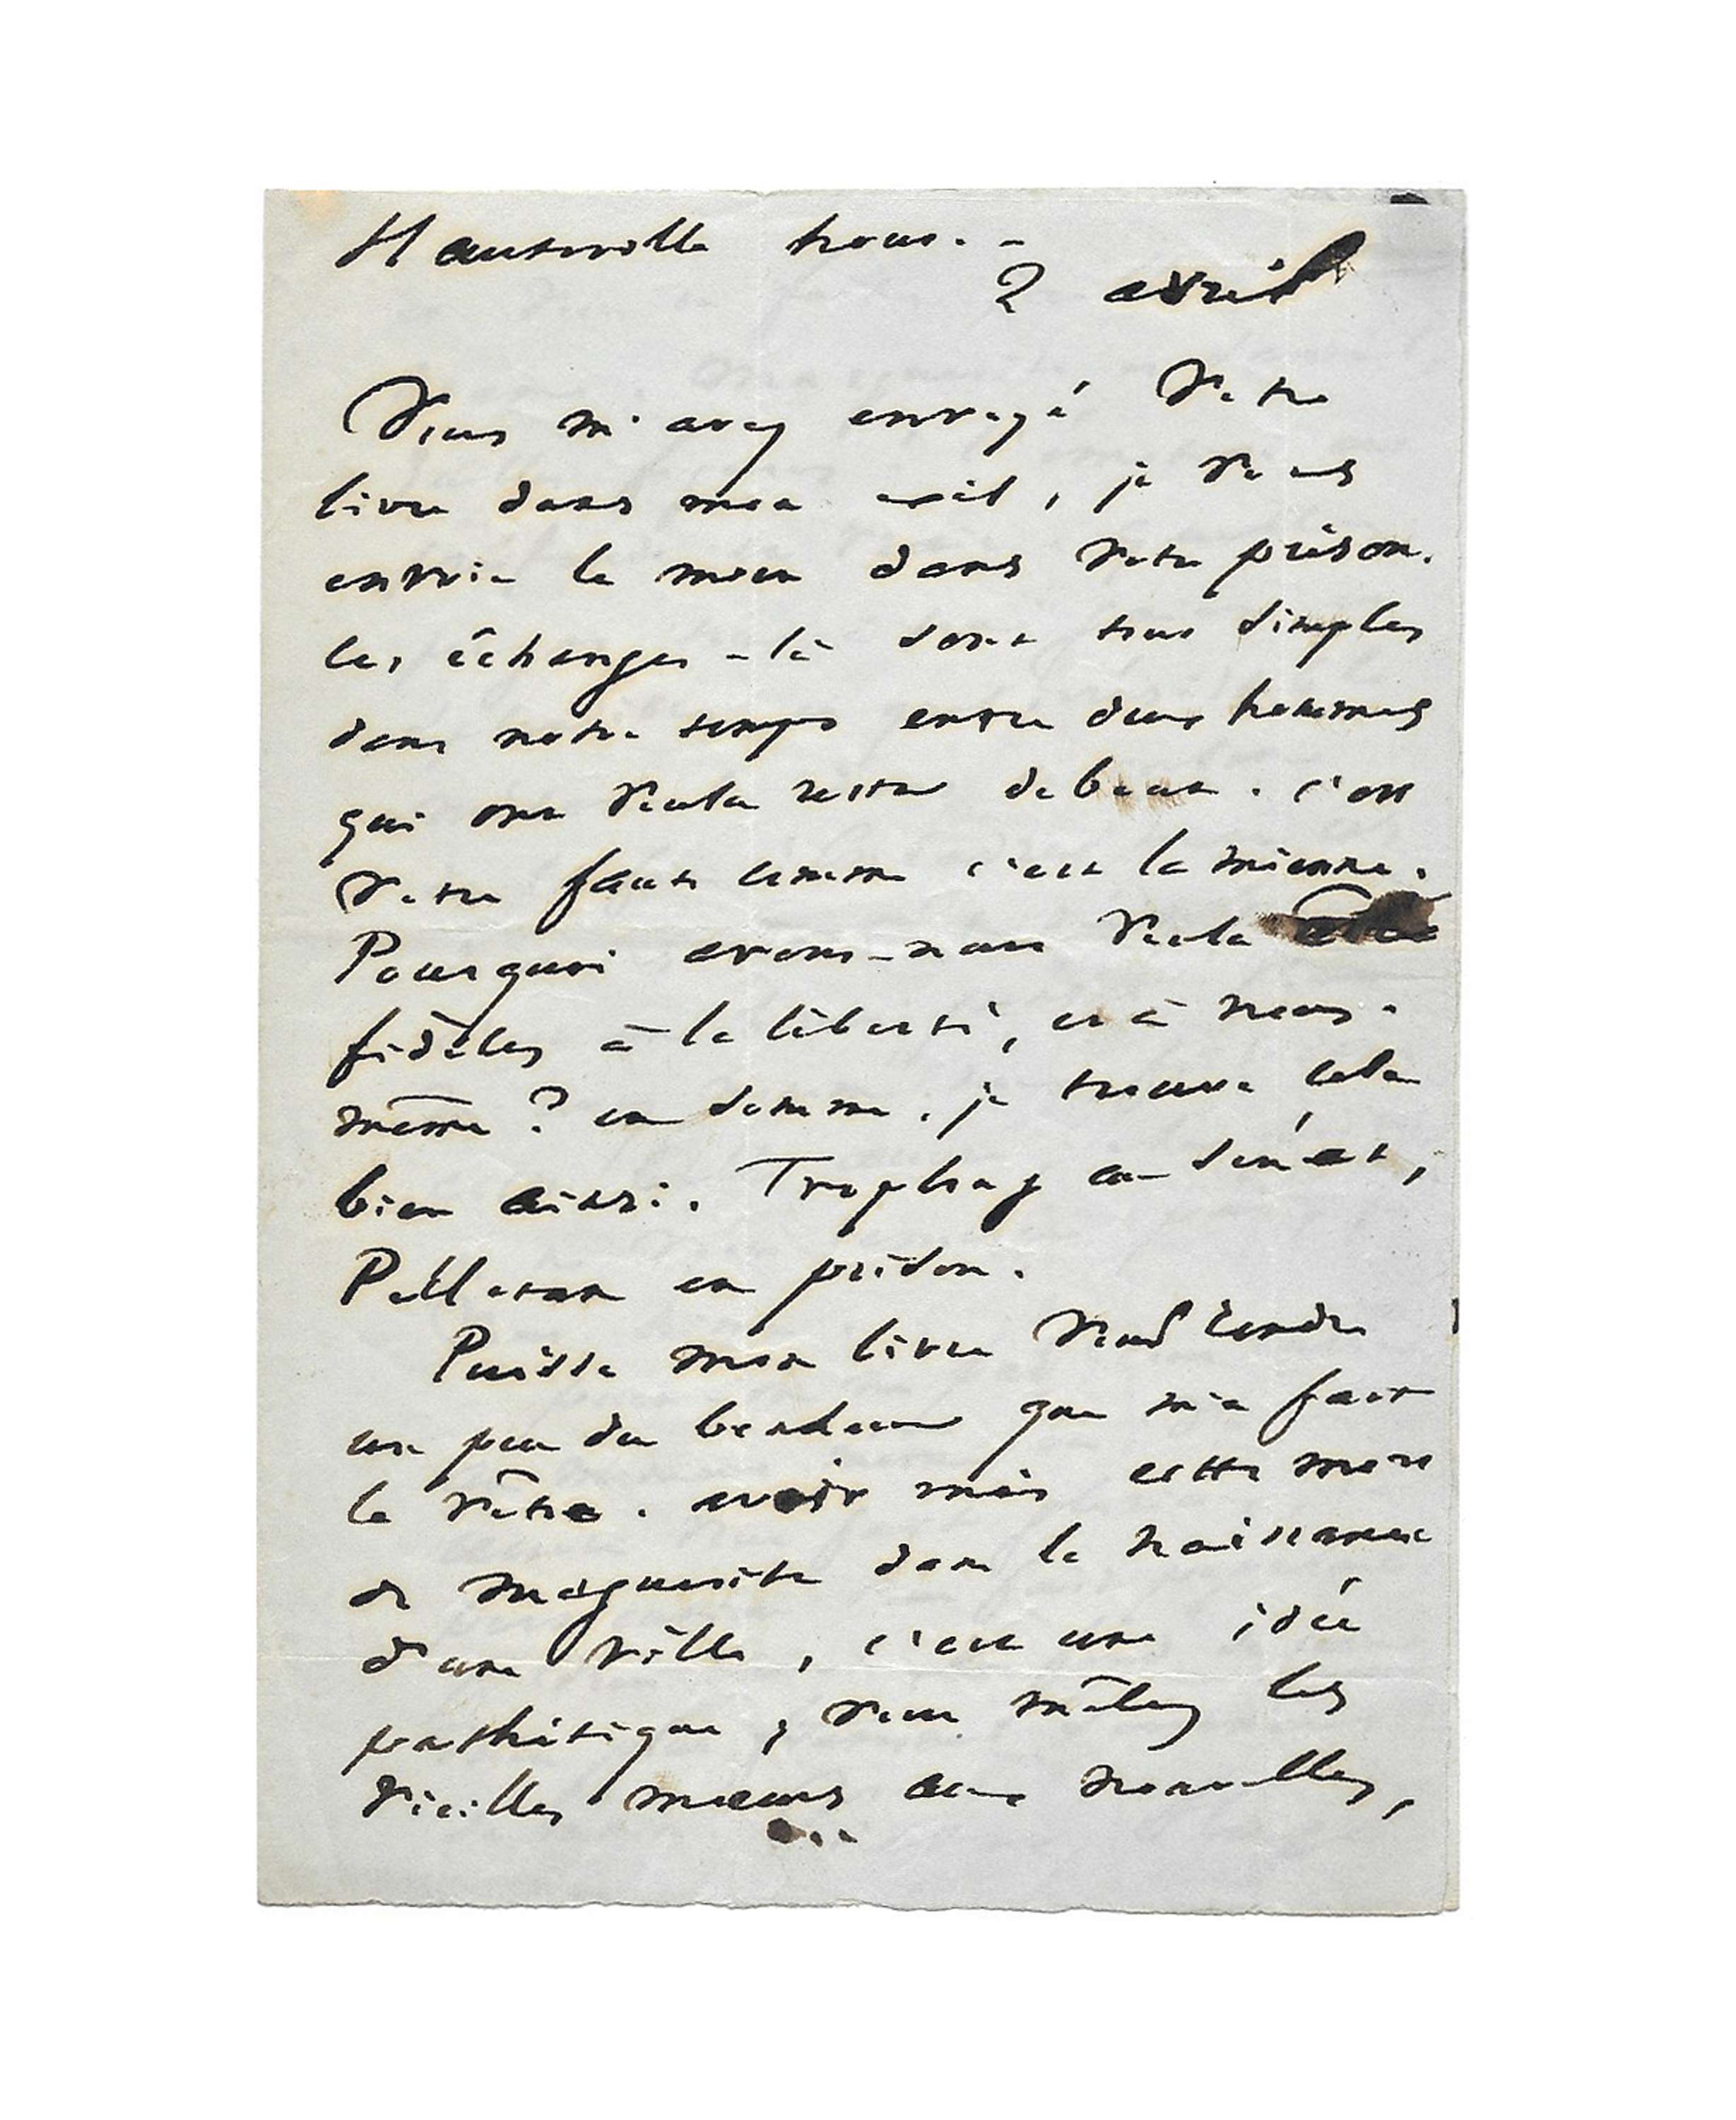 Hauteville house. –
2 avril
Vous m'avez envoyé votre
livre dans mon exil, je vous
envoie le mien dans votre prison.
ces échanges-là sont tous simples
dans notre temps entre deux hommes
qui ont voulu rester debout. c'est
votre faute comme c'est la mienne.
Pourquoi avons-nous voulu être
fidèles à la liberté, et à nous-
même ? en somme, je trouve cela
bien ainsi. Troplong au sénat,
Pelletan en prison.
Puisse mon livre vous rendre
un peu du bonheur que m'a fait
le vôtre. avoir mis cette mort
de Marguerite dans la naissance
d'une ville, c'est une idée
pathétique ; vous mêlez les
vieilles mœurs aux nouvelles,